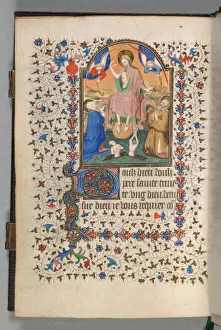 Doulz dieu doulz
pere sainte trini
te vng dieu. beau
sire dieu ie vous requier